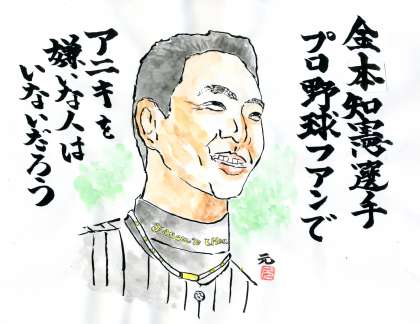 金本知憲選手
プロ野球ファンで
アニキを
嫌いな人は
いないだろう
元